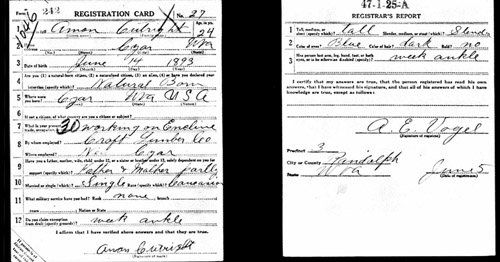 Form 1 242 REGISTRATION CARD No. 27
1046
1 Name in full Amon Cutright Age, in yrs. 24
2 Home address Czar W Va
3 Date of birth June 14 1893
4 Are you (1) a natural-born citizen, (2) a naturalized citizen, (3) an alien, (4) or have you declared your intention (specify which)? Natural Born
5 Where were you born? Czar W Va USA
6 If not a citizen, of what country are you a citizen or subject?
7 What is your present trade, occupation, or office? 30 working on Incline
8 By whom employed? Croft Lumber Co
Where employed? Czar
9 Have you a father, mother, wife, child under 12, or a sister or brother under 12, solely dependent on you for support (specify which)? Father & Mother partly
10 Married or single (which)? Single Race (specify which)? Caucasian
11 What military service have you had? Rank none ; branch
years ; Nation or State
12 Do you claim exemption from draft (specify grounds)? week ankle
I affirm that I have verified above answers and that they are true.
Amon Cutright
(Signature or mark)
47-1-25-A
REGISTRAR'S REPORT
1 Tall, medium, or short (specify which)? tall Slender, medium, or stout (which)? Slender
2 Color of eyes? Blue Color of hair? dark Bald? no
3 Has person lost arm, leg, hand, foot, or both eyes, or is he otherwise disabled (specify)? week ankle
I certify that my answers are true, that the person registered has read his own answers, that I have witnessed his signature, and that all of his answers of which I have knowledge are true, except as follows:
A. E. Vogel
(Signature of registrar)
Precinct 3
City or County Randolph
State W Va June 5
(Date of registration)